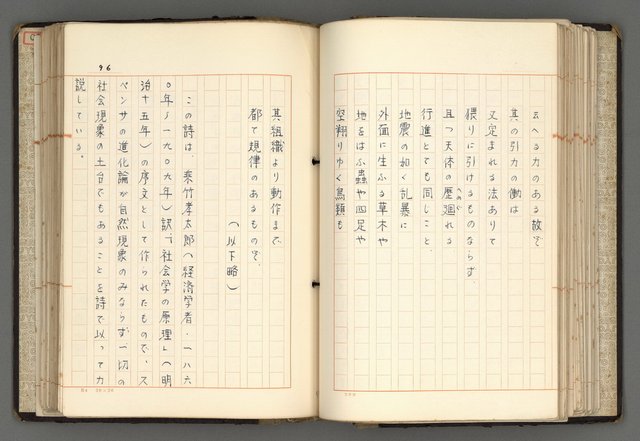 云へる力のある故ぞ
其の引力の働は
又定まれる法ありて
償りに引けるものならず
且つ天体の歴廻れる
行道とても同じこと、
地震の如く乱暴に
外面に生ふる草木や
地をはふ蟲や四足や
空翔りゆく鳥類も
其組織より動作まで
都て規律のあるものぞ、
(以下略)
この詩は、乘竹孝太郎(経済学者・一八六
〇年~一九〇九年)訳「社会学の原理」(明
治十五年)の序文として作られたもので、ス
ペンサの進化論が自然現象のみならず一切の
社会現象の土台でもあることを詩で以って力
説している。
96